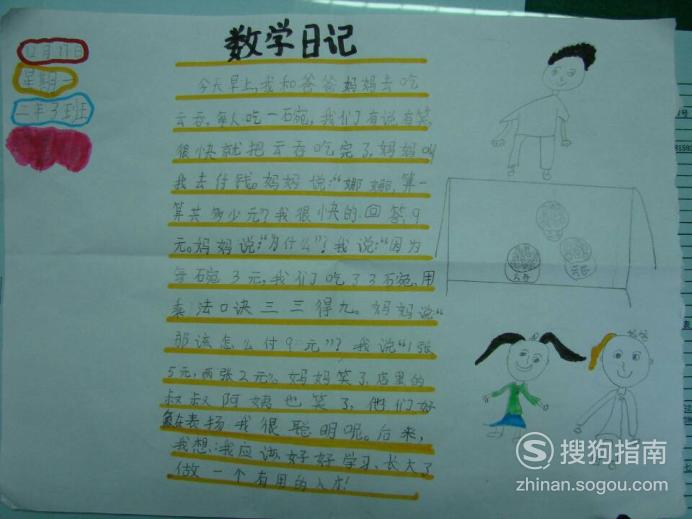 数学日记
12月31日
星期一
二年3班
今天早上,我和爸爸妈妈去吃
云吞。每人吃一石碗,我们有说有笑
很快就把云吞吃完了,妈妈叫
我去付钱。妈妈说:“娜娜,算一
算共多少元?”我很快的回答,9
元。妈妈说:“为什么”?我说:“因为
每石碗3元,我们吃了3石碗,用
乘法口诀三三得九。妈妈说“
那该怎么付9元”?我说“1张
5元,两张2元。妈妈笑了,店里的
叔叔阿姨也笑了,他们好
象在表扬我很聪明呢。后来,
我想:我应该好好学习、长大了
做一个有用的人才!
云吞
搜狗指南
zhinan.sogou.com